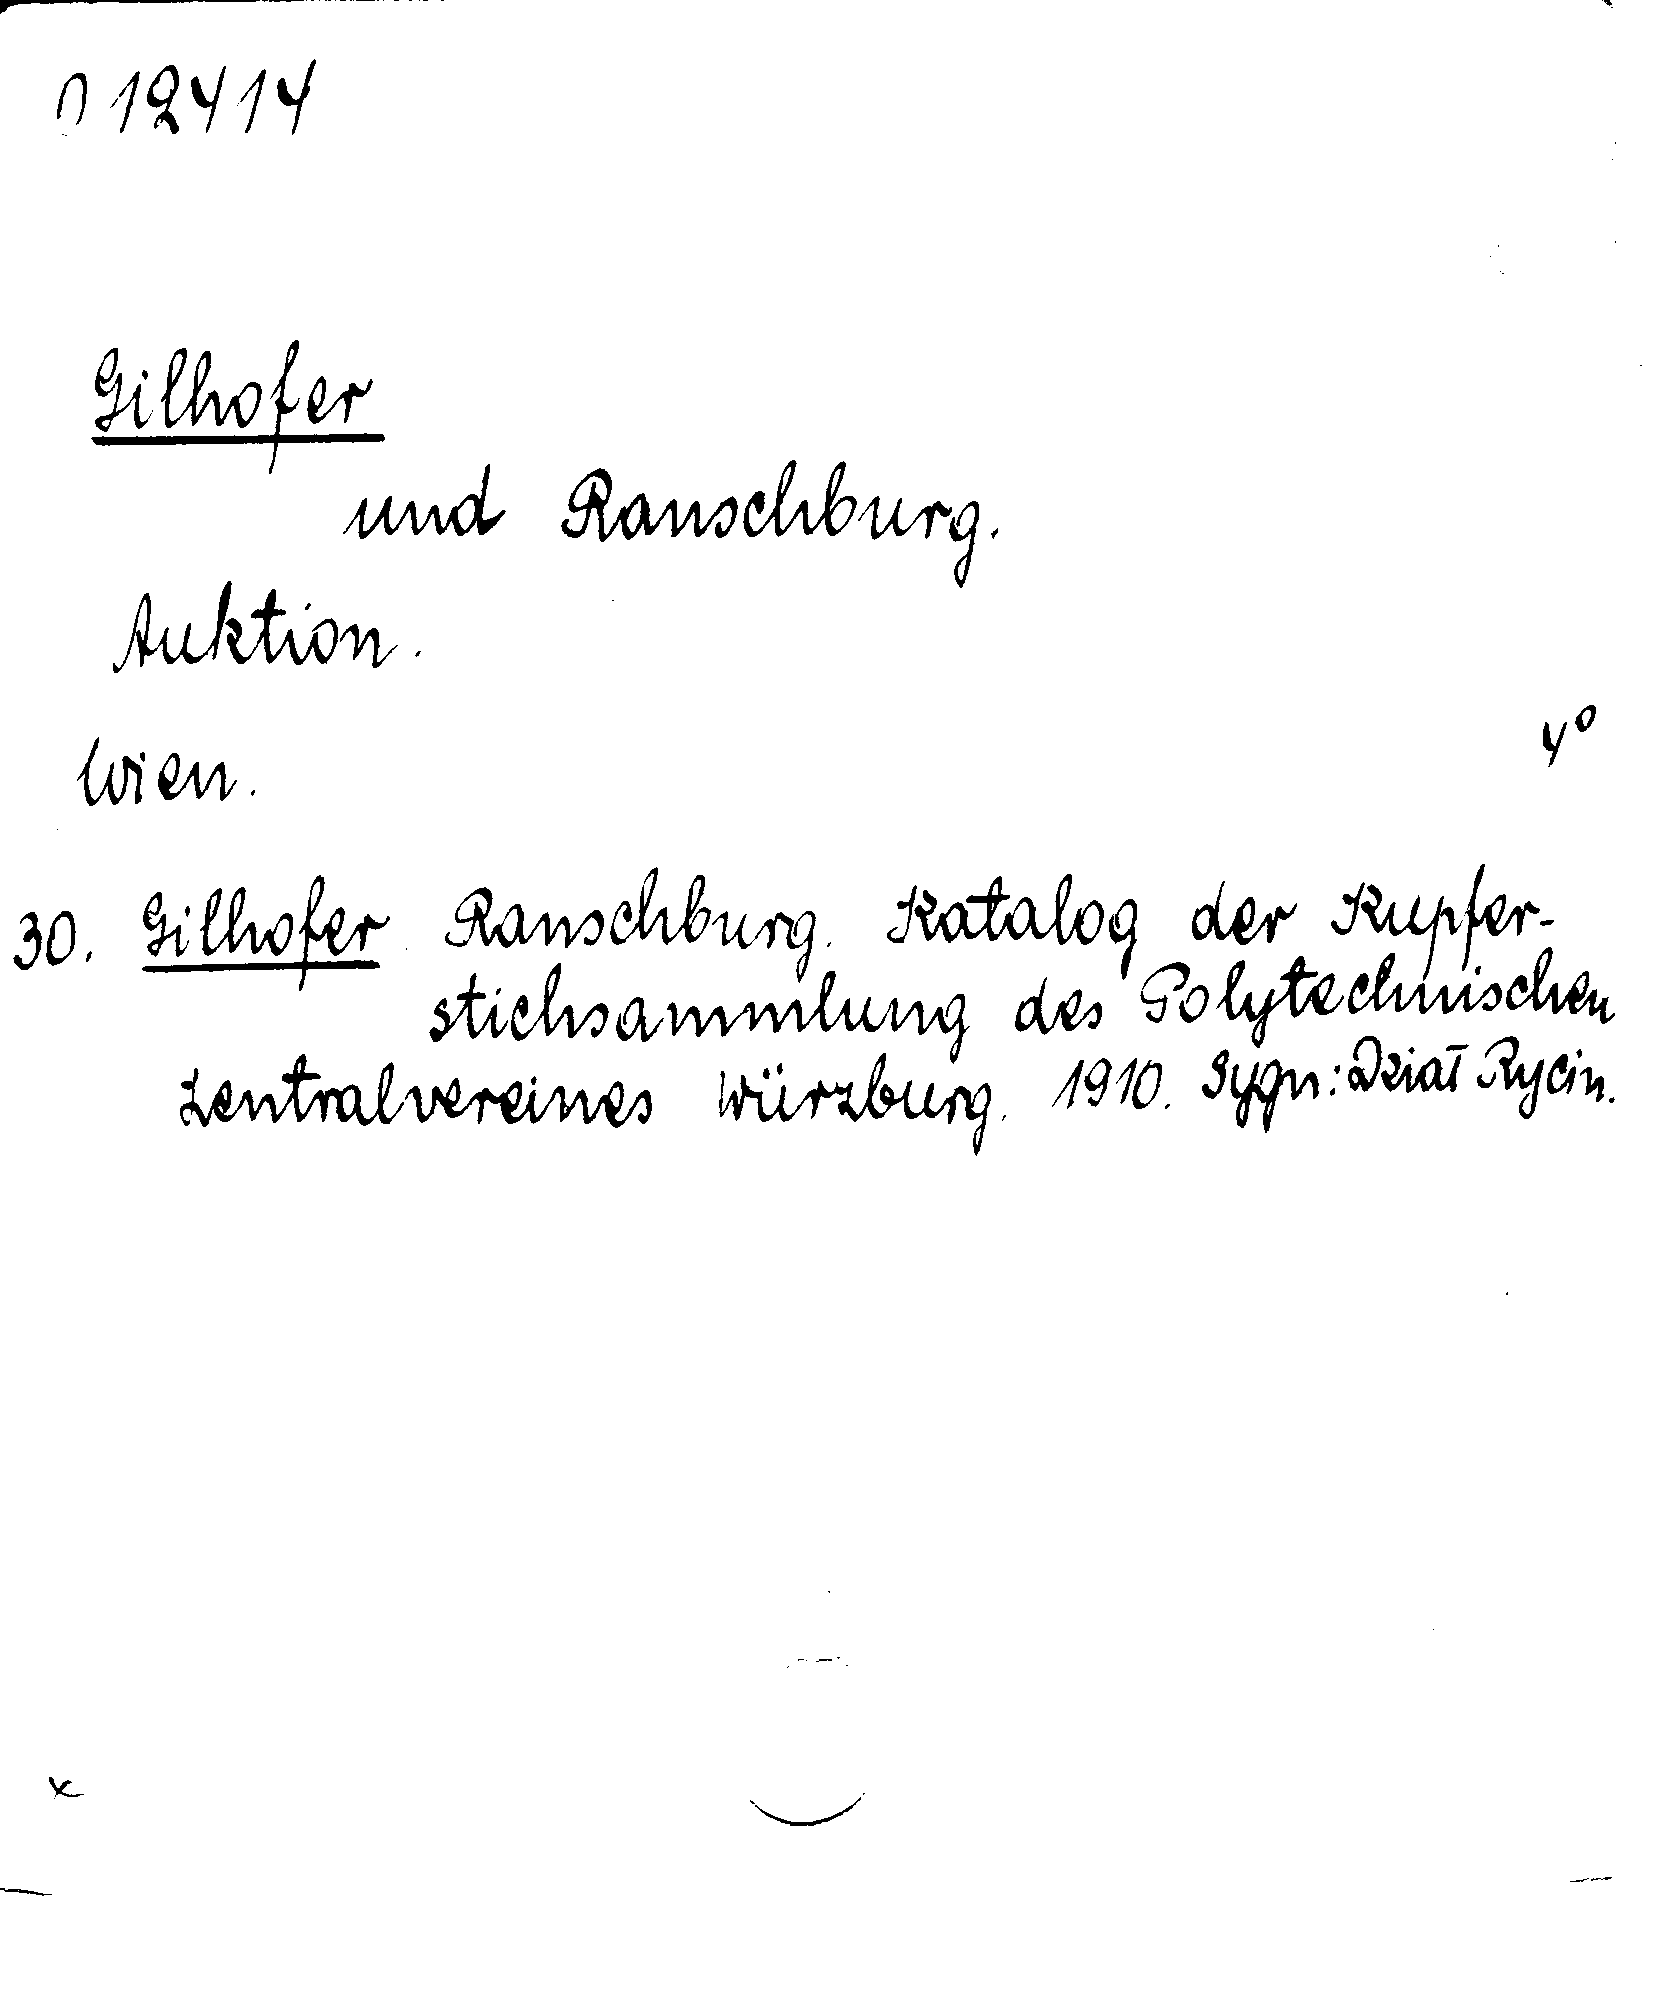 012414
Gilhofer
und Ranschburg.
Auktion.
Wien.
4°
30. Gilhofer Ranschburg. Katalog der Kupfer-
stichsammlung des Polytechnischen
Zentralvereines Würzburg. 1910. Sygn: Dział Rycin.
x